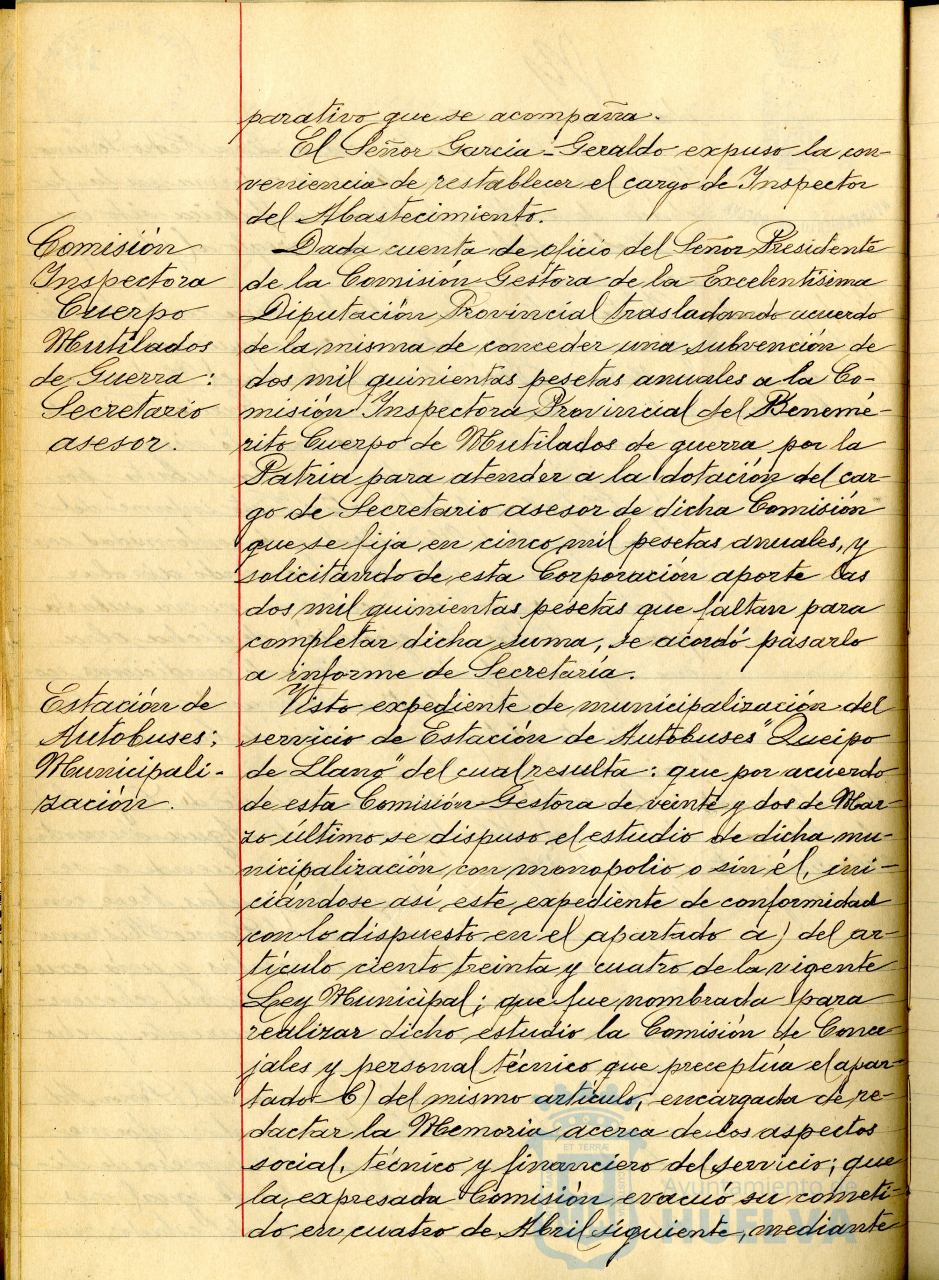 parativo que se acompaña.
El Señor Garcia-Geraldo expuso la con-
veniencia de restablecer el cargo de Inspector
del Abastecimiento.
Comisión
Inspectora
Cuerpo
Mutilados
de Guerra:
Secretario
asesor.
Dada cuenta de oficio del Señor Presidente
de la Comisión Gestora de la Excelentísima
Diputación Provincial trasladando acuerdo
de la misma de conceder una subvención de
dos mil quinientas pesetas anuales a la Co-
misión Inspectora Provincial del Benemé-
rito Cuerpo de Mutilados de guerra por la
Patria para atender a la dotación del car-
go de Secretario asesor de dicha Comisión
que se fija en cinco mil pesetas anuales, y
solicitando de esta Corporación aporte las
dos mil quinientas pesetas que faltan para
completar dicha suma, se acordó pasarlo
a informe de Secretaría.
Estación de
Autobuses:
Municipali-
zación.
Visto expediente de municipalización del
servicio de Estación de Autobuses "Queipo
de Llano" del cual resulta: que por acuerdo
de esta Comisión Gestora de veinte y dos de Mar-
zo último se dispuso el estudio de dicha mu-
nicipalización con monopolio o sin él, ini-
ciándose así este expediente de conformidad
con lo dispuesto en el apartado a) del ar-
tículo ciento treinta y cuatro de la vigente
Ley Municipal; que fue nombrada para
realizar dicho estudio la Comisión de Conce-
jales y personal técnico que preceptúa el apar-
tado b) del mismo artículo, encargada de re-
dactar la Memoria acerca de los aspectos
social, técnico y financiero del servicio; que
la expresada Comisión evacuó su cometi-
do en cuatro de Abril siguiente, mediante
Ayuntamiento de
HUELVA